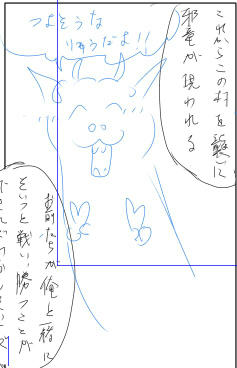 これからこの村を襲いに
邪竜が現われる
つよそうな
りゅうだよ!!
お前たちが俺と一緒に
そいつと戦い勝つことが